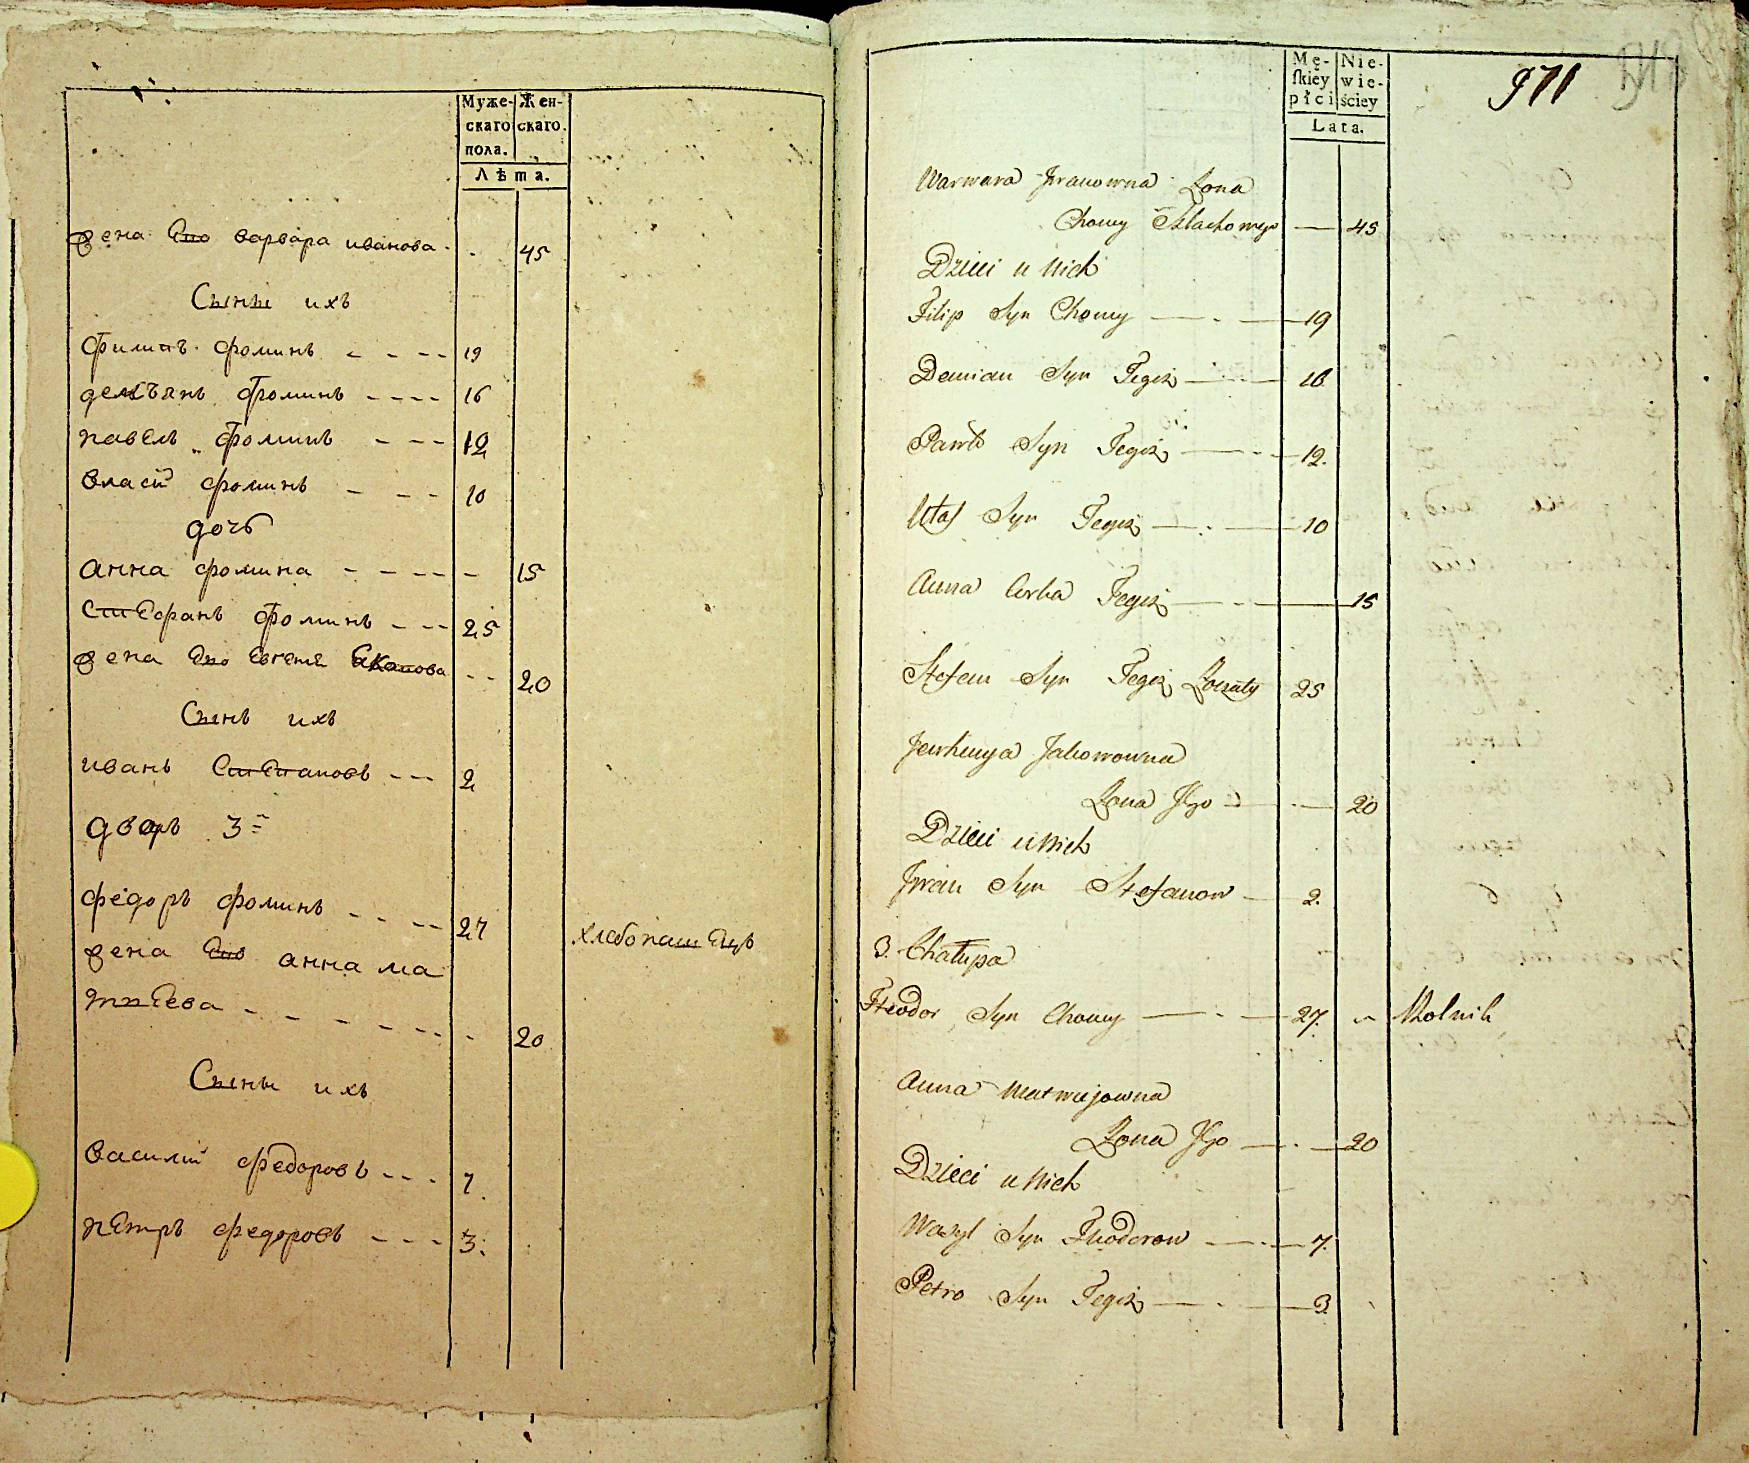 Муже- Жен-
скаго скаго.
пола.
Лѣта.
жена Ево варвара иванова - 45
Сыны ихъ
филипъ фоминъ - - - - 19
демъянъ фоминъ - - - - 16
павелъ фоминъ - - - 12
власий фоминъ - - - 10
дочь
анна фомина - - - - - 15
Степанъ фоминъ - - - 25
жена Ево Евгенья - - 20
Сынъ ихъ
иванъ Степановъ - - - 2
дворъ 3й
федоръ фоминъ - - - - 27 хлебопашецъ
жена Ево анна ма
твѣева - - - - - - - 20
Сыны ихъ
василий федоровъ - - - 7.
петръ федоровъ - - - - 3.
Mę- Nie-
skiey wie-
płci ściey
Lata.
971
Warwara Iwanowna Zona
Chomy — 45
Dzieci u Nich
Filip Syn Chomy — - — 19
Demian Syn Tegoż — - — 16
Pawło Syn Tegoż — - — 12.
Ułas Syn Tegoż — - — 10
Anna Corka Tegoż — - — 15
Stefan Syn Tegoż Zonaty 25
Jewhenya Jakowowna
Zona Jego — - — 20
Dzieci u Nich
Iwan Syn Stefanow — 2.
3. Chałupa
Fteodor Syn Chomy — - — 27. „ Rolnik
Anna Matwiejowna
Zona Jego — - — 20
Dzieci u Nich
Wasyl Syn Fteodorow — - — 7.
Petro Syn Tegoż — - — 3